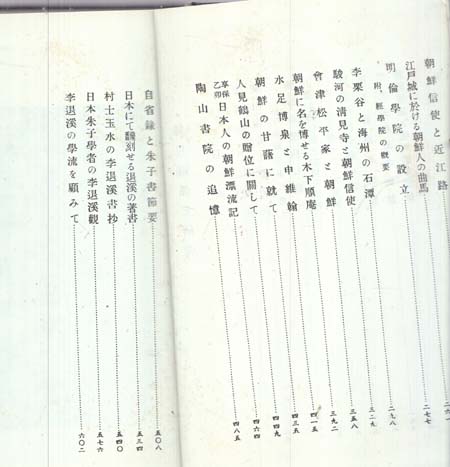 朝鮮信使と近江路……二六一
江戸城に於ける朝鮮人の曲馬……二七七
明倫學院の設立……二九八
附、經學院の概要
李栗谷と海州の石潭……三二九
駿河の清見寺と朝鮮信使……三五八
會津松平家と朝鮮……三九二
朝鮮に名を博せる木下順庵……四一五
水足博泉と申維翰……四三五
朝鮮の甘藷に就て……四四九
人見鶴山の贈位に關して……四六四
享保乙卯日本人の朝鮮漂流記……四八五
陶山書院の追憶
自省錄と朱子書節要……五〇八
日本にて飜刻せる退溪の著書……五三四
村士玉水の李退溪書抄……五四〇
日本朱子學者の李退溪觀……五七六
李退溪の學流を顧みて……六〇二